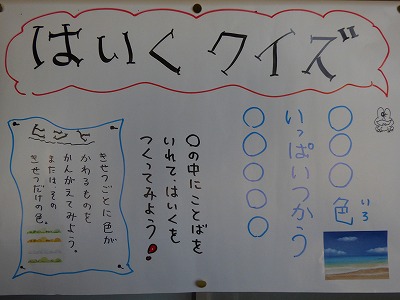 はいくクイズ
〇〇〇色
いろ
いっぱいつかう
〇〇〇〇〇
〇の中にことばを
いれて、はいくを
つくってみよう!
ヒント
きせつごとに色が
かわるものを
かんがえてみよう。
またはその
きせつだけの色。